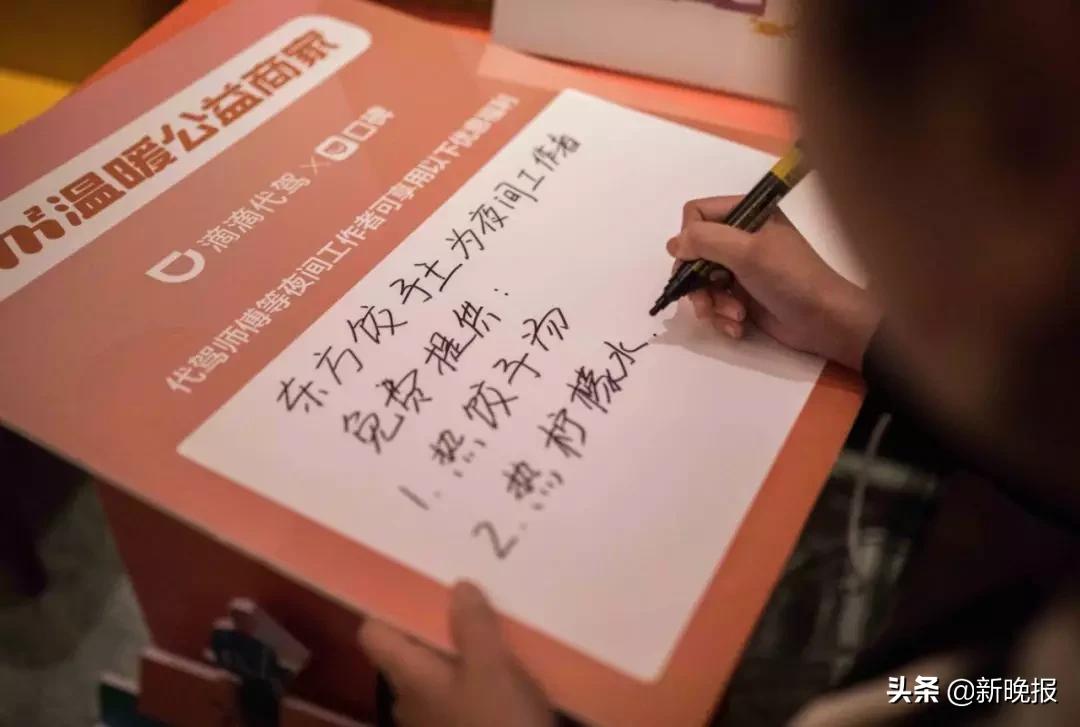 温暖公益商家
滴滴代驾×口碑
代驾师傅等夜间工作者可享用以下优惠福利
东方饺子王为夜间工作者
免费提供:
1. 热饺子汤
2. 热柠檬水.
头条 @新晚报